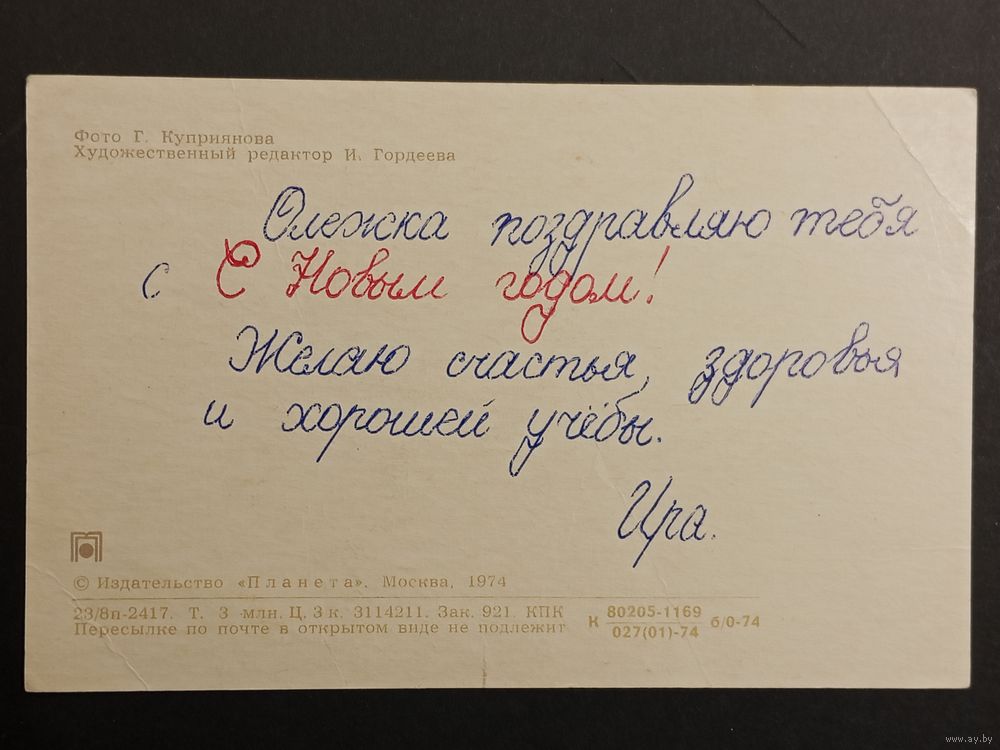 Фото Г. Куприянова
Художественный редактор И. Гордеева
Олежка поздравляю тебя
с С Новым годом!
Желаю счастья, здоровья
и хорошей учёбы.
Ира.
© Издательство «Планета». Москва, 1974
23/8п-2417. Т. 3 млн. Ц. 3 к. 3114211. Зак. 921. КПК
Пересылке по почте в открытом виде не подлежит
К 80205-1169
027(01)-74 б/0-74
www.ay.by